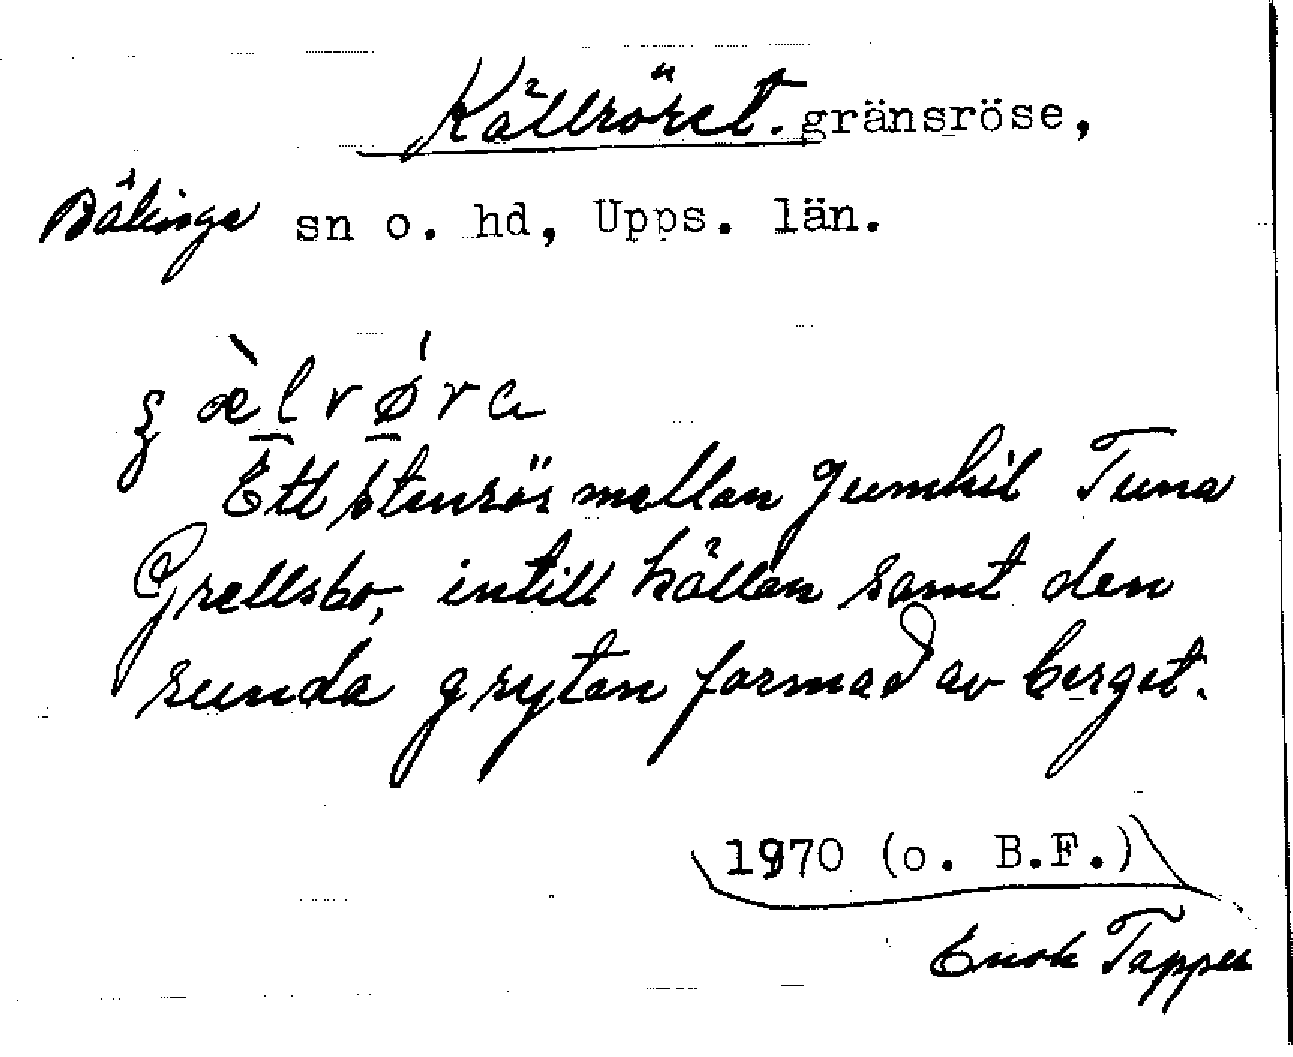 Källröret. gränsröse,
Bälinge sn o. hd, Upps. län.
ȿæ̀lrǿra
Ett stenrös mellan Jumkil Tuna
Grellsbo, intill källan samt den
runda grytan formad av berget.
1970 (o. B.F.)
Enok Tapper